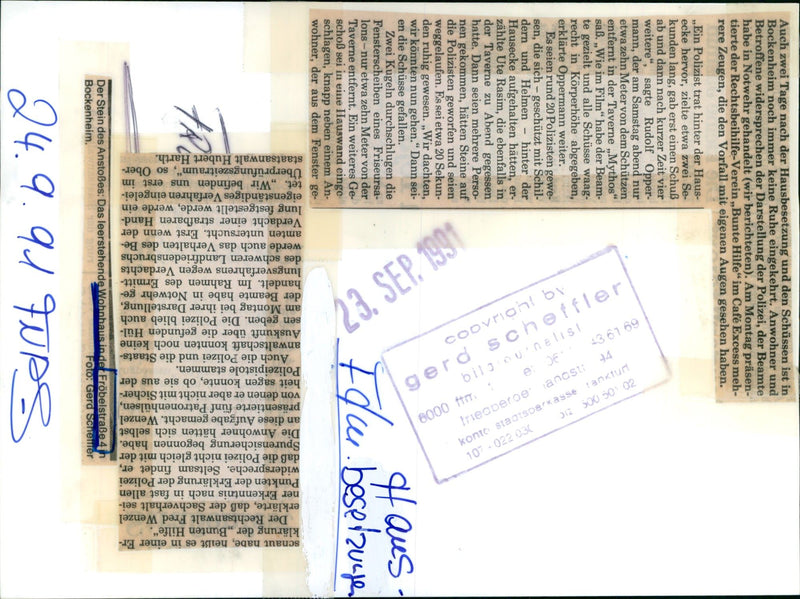 Auch zwei Tage nach der Hausbesetzung und den Schüssen ist in
Bockenheim noch immer keine Ruhe eingekehrt. Anwohner und
Betroffene widersprechen der Darstellung der Polizei, der Beamte
habe in Notwehr gehandelt (wir berichteten). Am Montag präsen-
tierte der Rechtsbeihilfe-Verein „Bunte Hilfe“ im Café Excess meh-
rere Zeugen, die den Vorfall mit eigenen Augen gesehen haben.
„Ein Polizist trat hinter der Haus-
ecke hervor, zielte etwa zwei Se-
kunden lang, gab erst einen Schuß
ab und dann nach kurzer Zeit vier
weitere“, sagte Rudolf Opper-
mann, der am Samstag abend nur
etwa zehn Meter von dem Schützen
entfernt in der Taverne „Mythos“
saß. „Wie im Film“ habe der Beam-
te gezielt und alle Schüsse waag-
recht in Körperhöhe abgegeben,
erklärte Oppermann weiter.
Es seien rund 20 Polizisten gewe-
sen, die sich – geschützt mit Schil-
dern und Helmen – hinter der
Hausecke aufgehalten hätten, er-
zählte Ute Kasim, die ebenfalls in
der Taverne zu Abend gegessen
hatte. Dann seien mehrere Perso-
nen gekommen, hätten Steine auf
die Polizisten geworfen und seien
weggelaufen. Es sei etwa 20 Sekun-
den ruhig gewesen. „Wir dachten,
wir könnten nun gehen.“ Dann sei-
en die Schüsse gefallen.
Zwei Kugeln durchschlugen die
Fensterscheiben eines Friseursa-
lons – nur etwa zehn Meter von der
Taverne entfernt. Ein weiteres Ge-
schoß sei in eine Hauswand einge-
schlagen, knapp neben einem An-
wohner, der aus dem Fenster ge-
schaut habe, heißt es in einer Er-
klärung der „Bunten Hilfe“.
Der Rechtsanwalt Fred Wenzel
erklärte, daß der Sachverhalt sei-
ner Erkenntnis nach in fast allen
Punkten der Erklärung der Polizei
widerspreche. Seltsam findet er,
daß die Polizei nicht gleich mit der
Spurensicherung begonnen habe.
Die Anwohner hätten sich selbst
an diese Aufgabe gemacht. Wenzel
präsentierte fünf Patronenhülsen,
von denen er aber nicht mit Sicher-
heit sagen konnte, ob sie aus der
Polizeipistole stammen.
Auch die Polizei und die Staats-
anwaltschaft konnten noch keine
Auskunft über die gefunden Hül-
sen geben. Die Polizei blieb auch
am Montag bei ihrer Darstellung,
der Beamte habe in Notwehr ge-
handelt. Im Rahmen des Ermitt-
lungsverfahrens wegen Verdachts
des schweren Landfriedensbruchs
werde auch das Verhalten des Be-
amten untersucht. Erst wenn der
Verdacht einer strafbaren Hand-
lung festgestellt werde, werde ein
eigenständiges Verfahren eingelei-
tet. „Wir befinden uns erst im
Überprüfungszeitraum“, so Ober-
staatsanwalt Hubert Harth.
Der Stein des Anstoßes: Das leerstehende Wohnhaus in der Fröbelstraße 4 in
Bockenheim.
Foto: Gerd Scheffler
24.9.91
23. SEP. 1991
copyright by
gerd scheffler
bildjournalist
43 61 69
6000
friedberger landstr. 44
konto stadtsparkasse frankfurt
Haus-
besetzungen